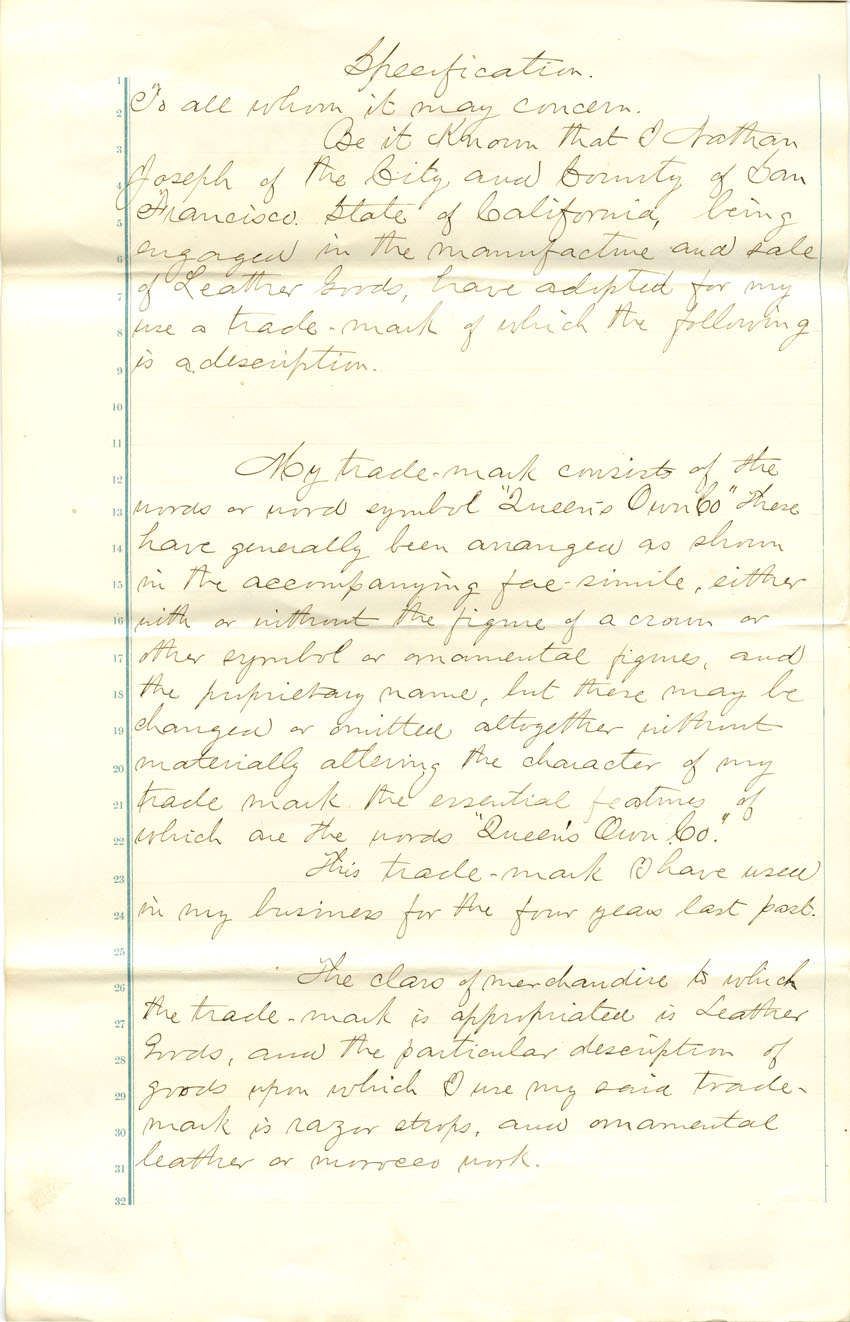 Specification.
1
2 To all whom it may concern.
3 Be it Known that I Nathan
4 Joseph of the City and County of San
5 Francisco. State of California, being
6 engaged in the manufacture and sale
7 of Leather Goods, have adopted for my
8 use a trade-mark of which the following
9 is a description.
10
11
12 My trade-mark consists of the
13 words or word symbol "Queen's Own Co" These
14 have generally been arranged as shown
15 in the accompanying fac-simile, either
16 with or without the figure of a crown or
17 other symbol or ornamental figures, and
18 the proprietary name, but these may be
19 changed or omitted altogether without
20 materially altering the character of my
21 trade mark the essential features of
22 which are the words "Queen's Own Co."
23 This trade-mark I have used
24 in my business for the four years last past.
25
26 The class of merchandise to which
27 the trade-mark is appropriated is Leather
28 Goods, and the particular description of
29 goods upon which I use my said trade-
30 mark is razor strops, and ornamental
31 leather or morocco work.
32